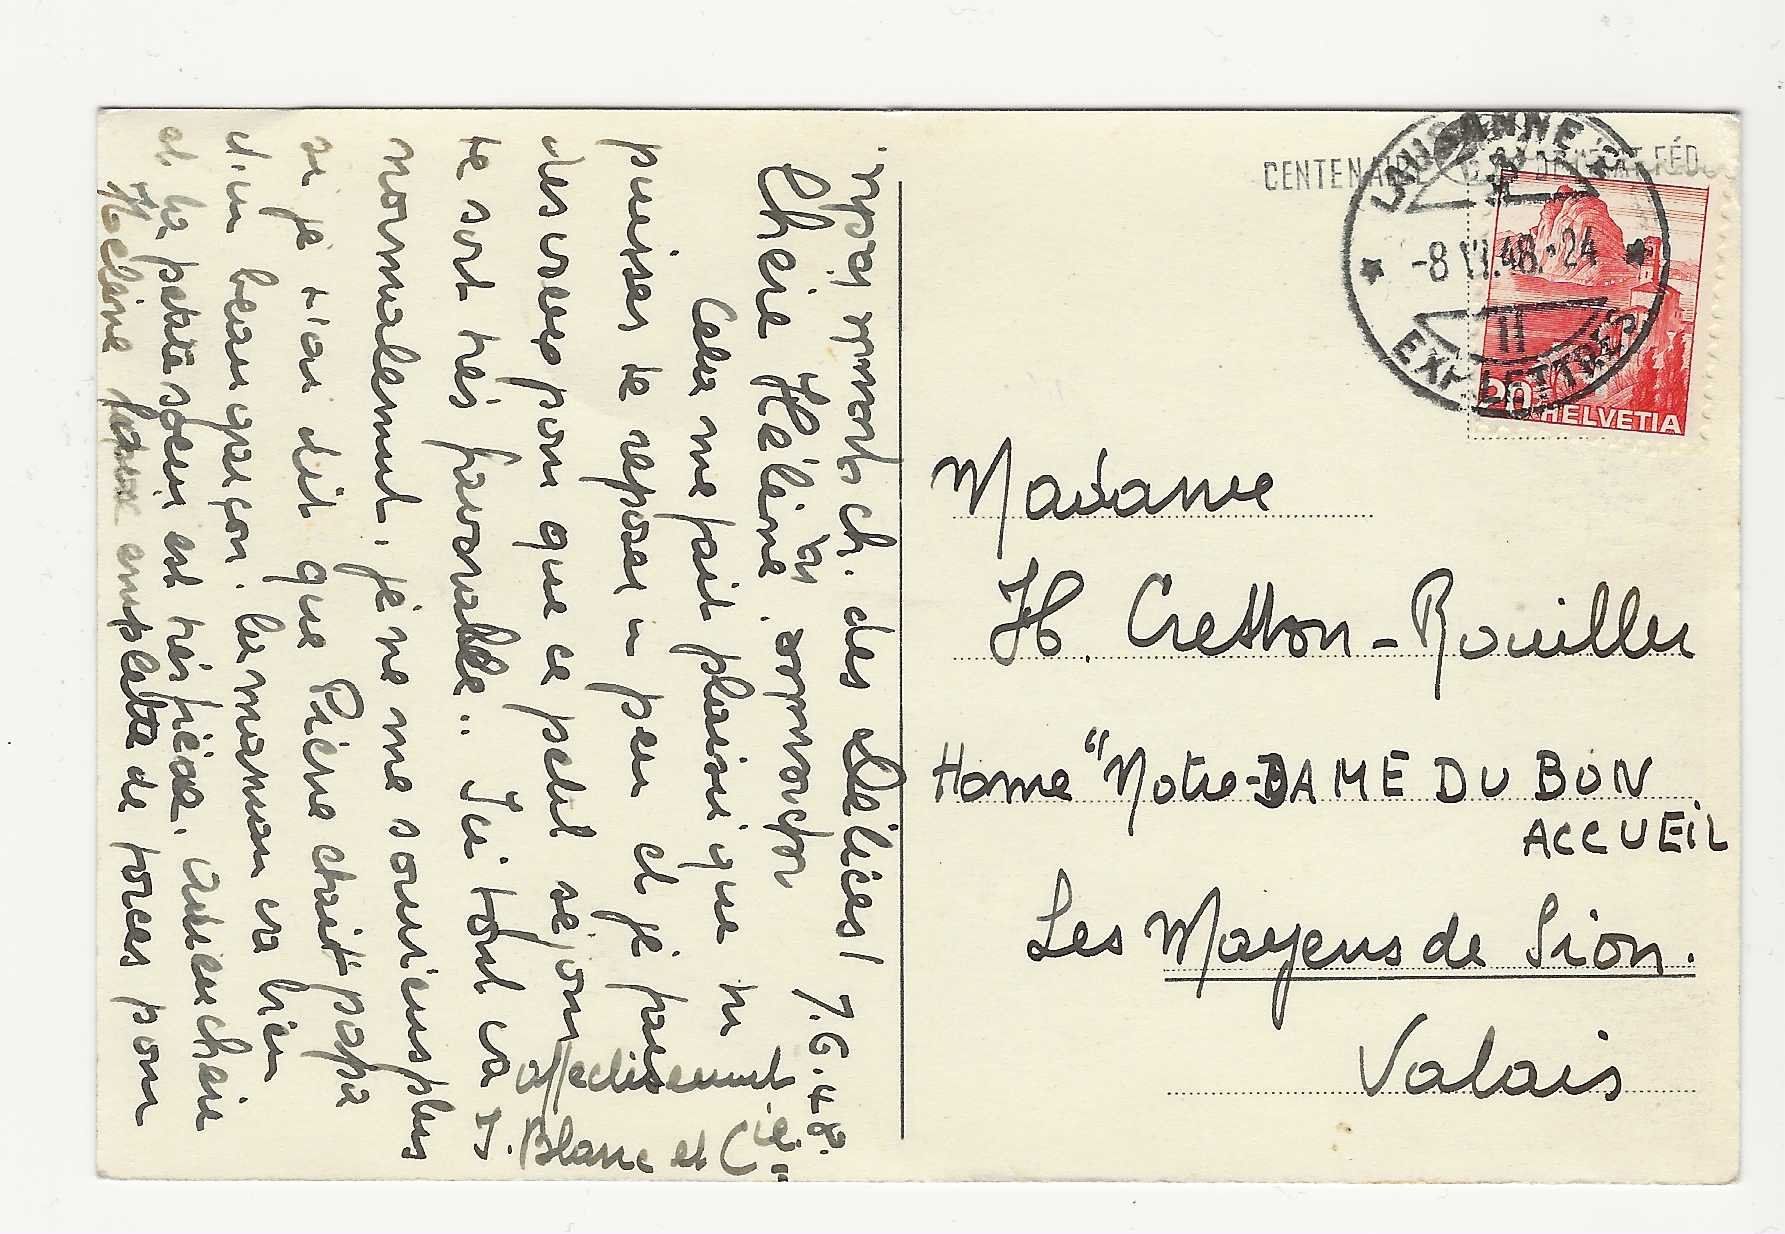 ch. des Délices 1 7.6.48.
Chère Hélène
Cela me fait plaisir que tu
puisses te reposer un peu et je fais
des vœux pour que ce petit séjour
te soit très favorable.. Ici tout va
normalement, je ne me souviens plus
si je t'ai dit que Pierre était papa
d'un beau garçon. la maman va bien
et la petite sœur est très fière. Au revoir chère
Hélène emplette de forces pour
affectivement
J. Blanc et Cie.
CENTENAIRE DE L'ETAT FÉD
LAUSANNE
-8 VI.48.-24
II
EXP. LETTRES
20 HELVETIA
Madame
H. Cretton-Rouiller
Home "Notre-DAME DU BON
ACCUEIL
Les Mayens de Sion.
Valais